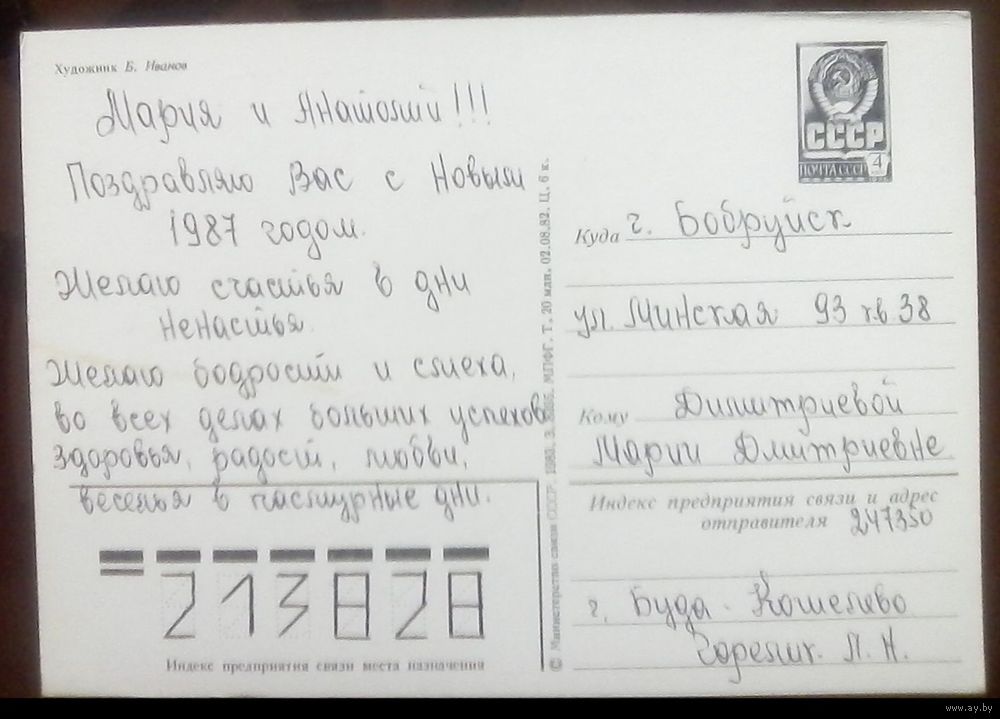 Художник Б. Иванов
Мария и Анатолий!!!
Поздравляю Вас с Новым
1987 годом.
Желаю счастья в дни
ненастья.
Желаю бодрости и смеха,
во всех делах больших успехов
здоровья, радости, любви,
веселья в пасмурные дни.
213828
Индекс предприятия связи места назначения
© Министерство связи СССР. 1983. З. МПФГ. Т. 20 млн. 02.08.82. Ц. 6 к.
СССР
4
ПОЧТА СССР
Куда г. Бобруйск
ул. Минская 93 кв 38
Кому Димитриевой
Марии Дмитриевне
Индекс предприятия связи и адрес
отправителя 247350
г. Буда-Кошелево
Л. Н.
www.ay.by